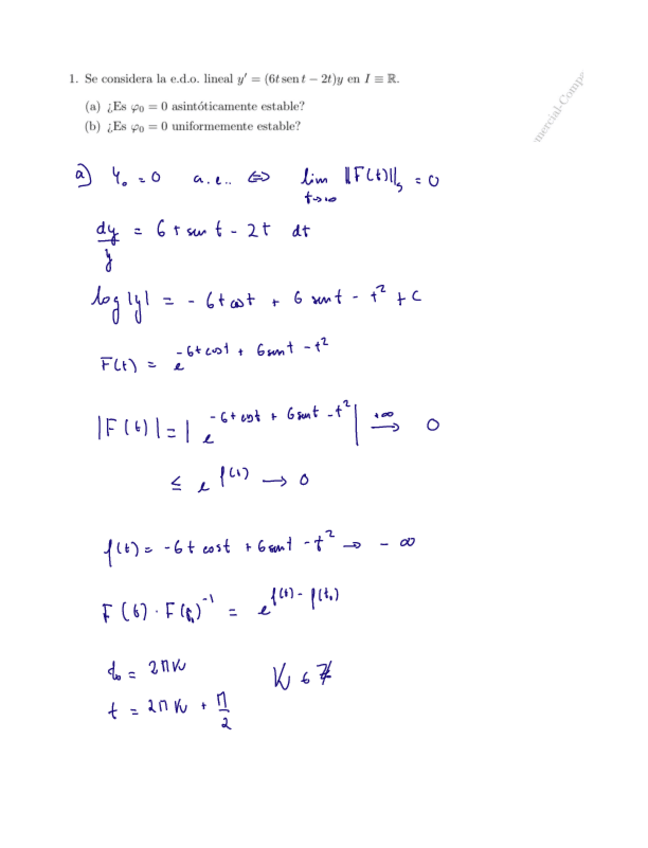 1. Se considera la e.d.o. lineal y′ = (6t sen t − 2t)y en I ≡ ℝ.
(a) ¿Es φ₀ = 0 asintóticamente estable?
(b) ¿Es φ₀ = 0 uniformemente estable?
mercial-Comp
a) φ₀ = 0 a.e. ⇔ lim ‖F(t)‖ₛ = 0
t→∞
dy/y = 6t sen t − 2t dt
log|y| = − 6t cos t + 6 sen t − t² + C
F(t) = e^(−6t cos t + 6 sen t − t²)
|F(t)| = |e^(−6t cos t + 6 sen t − t²)| →^(+∞) 0
≤ e^f(t) → 0
f(t) = −6t cos t + 6 sen t − t² → − ∞
F(t) · F(t₀)⁻¹ = e^(f(t) − f(t₀))
t₀ = 2πK K ∈ ℤ
t = 2πK + π/2